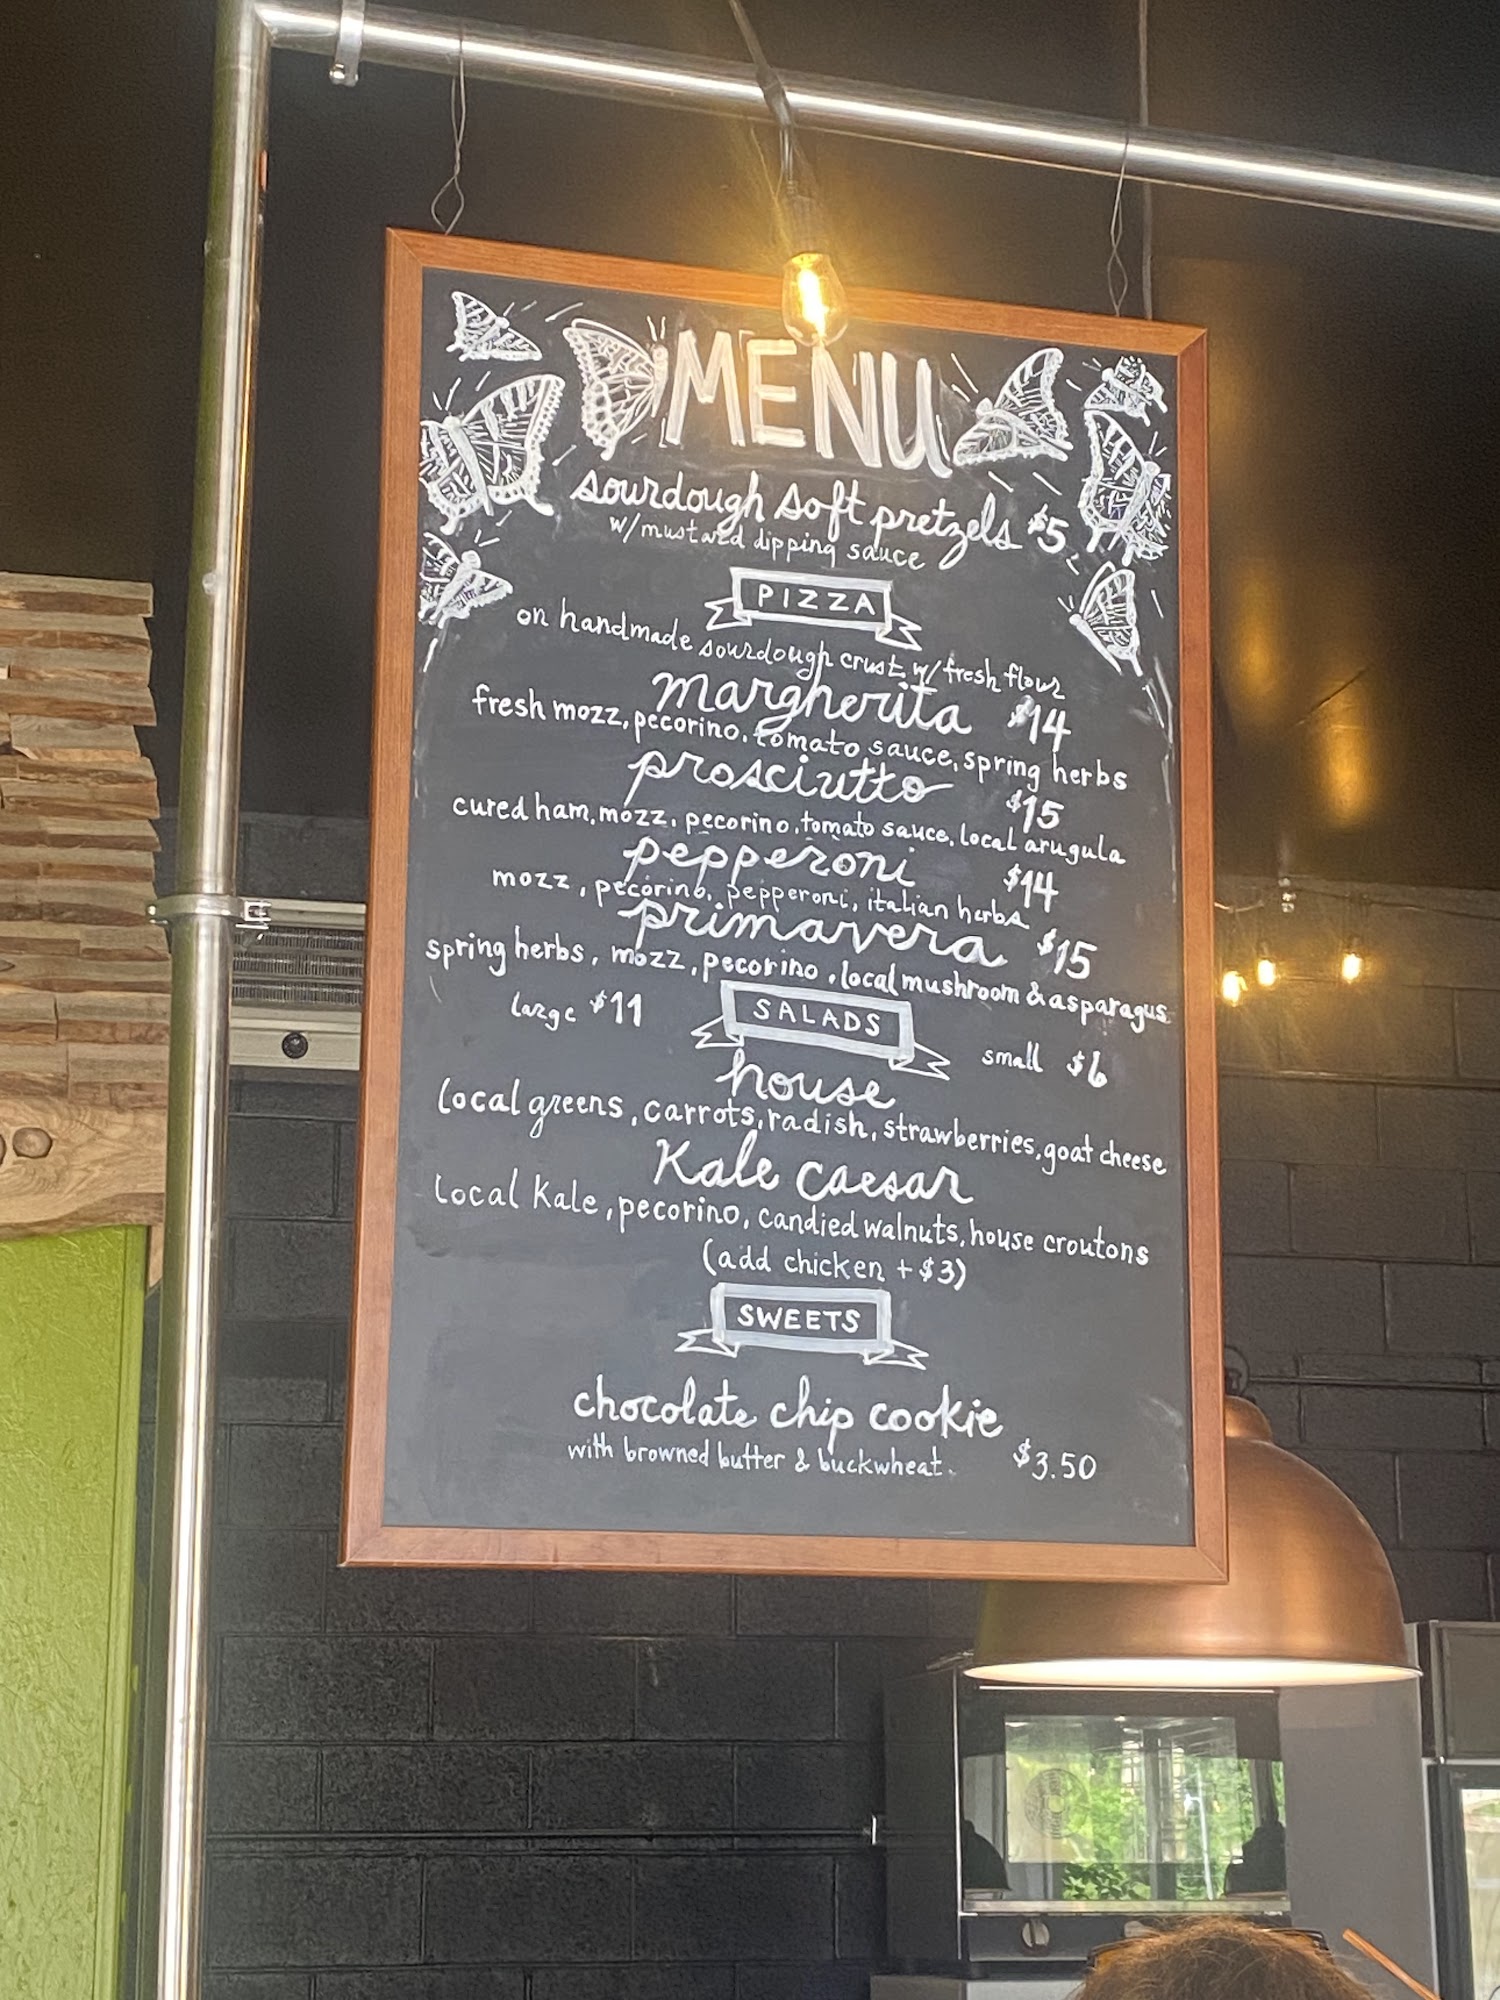 MENU
sourdough soft pretzels $5
w/mustard dipping sauce
PIZZA
on handmade sourdough crust w/fresh flour
margherita $14
fresh mozz, pecorino, tomato sauce, spring herbs
prosciutto $15
cured ham, mozz, pecorino, tomato sauce, local arugula
pepperoni $14
mozz, pecorino, pepperoni, italian herbs
primavera $15
spring herbs, mozz, pecorino, local mushroom & asparagus
large $11 SALADS small $6
house
local greens, carrots, radish, strawberries, goat cheese
Kale caesar
local Kale, pecorino, candied walnuts, house croutons
(add chicken + $3)
SWEETS
chocolate chip cookie
with browned butter & buckwheat. $3.50